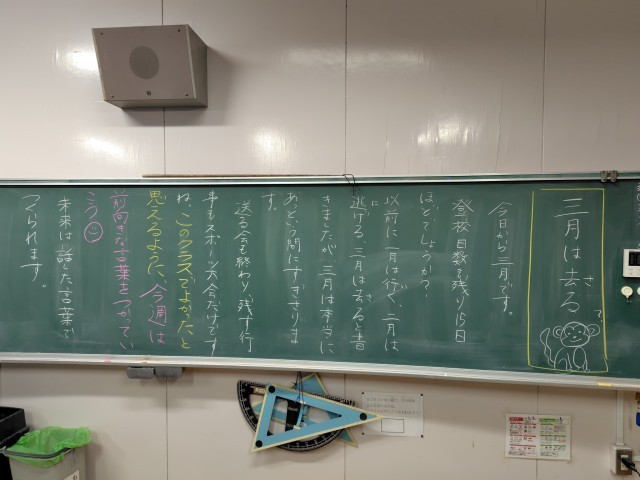 三月は去る
さ
今日から三月です。
登校日数も残り15日
ほどでしょうか？
以前に一月は行く、二月は
逃げる、三月は去ると書
に
さ
きましたが、三月は本当に
あという間にすぎさりま
す。
送る会も終わり、残す行
事もスポーツ大会だけです
ね。このクラスでよかったと
思えるように、今週は
前向きな言葉をつかってい
こう
未来は話した言葉で
つくられます。